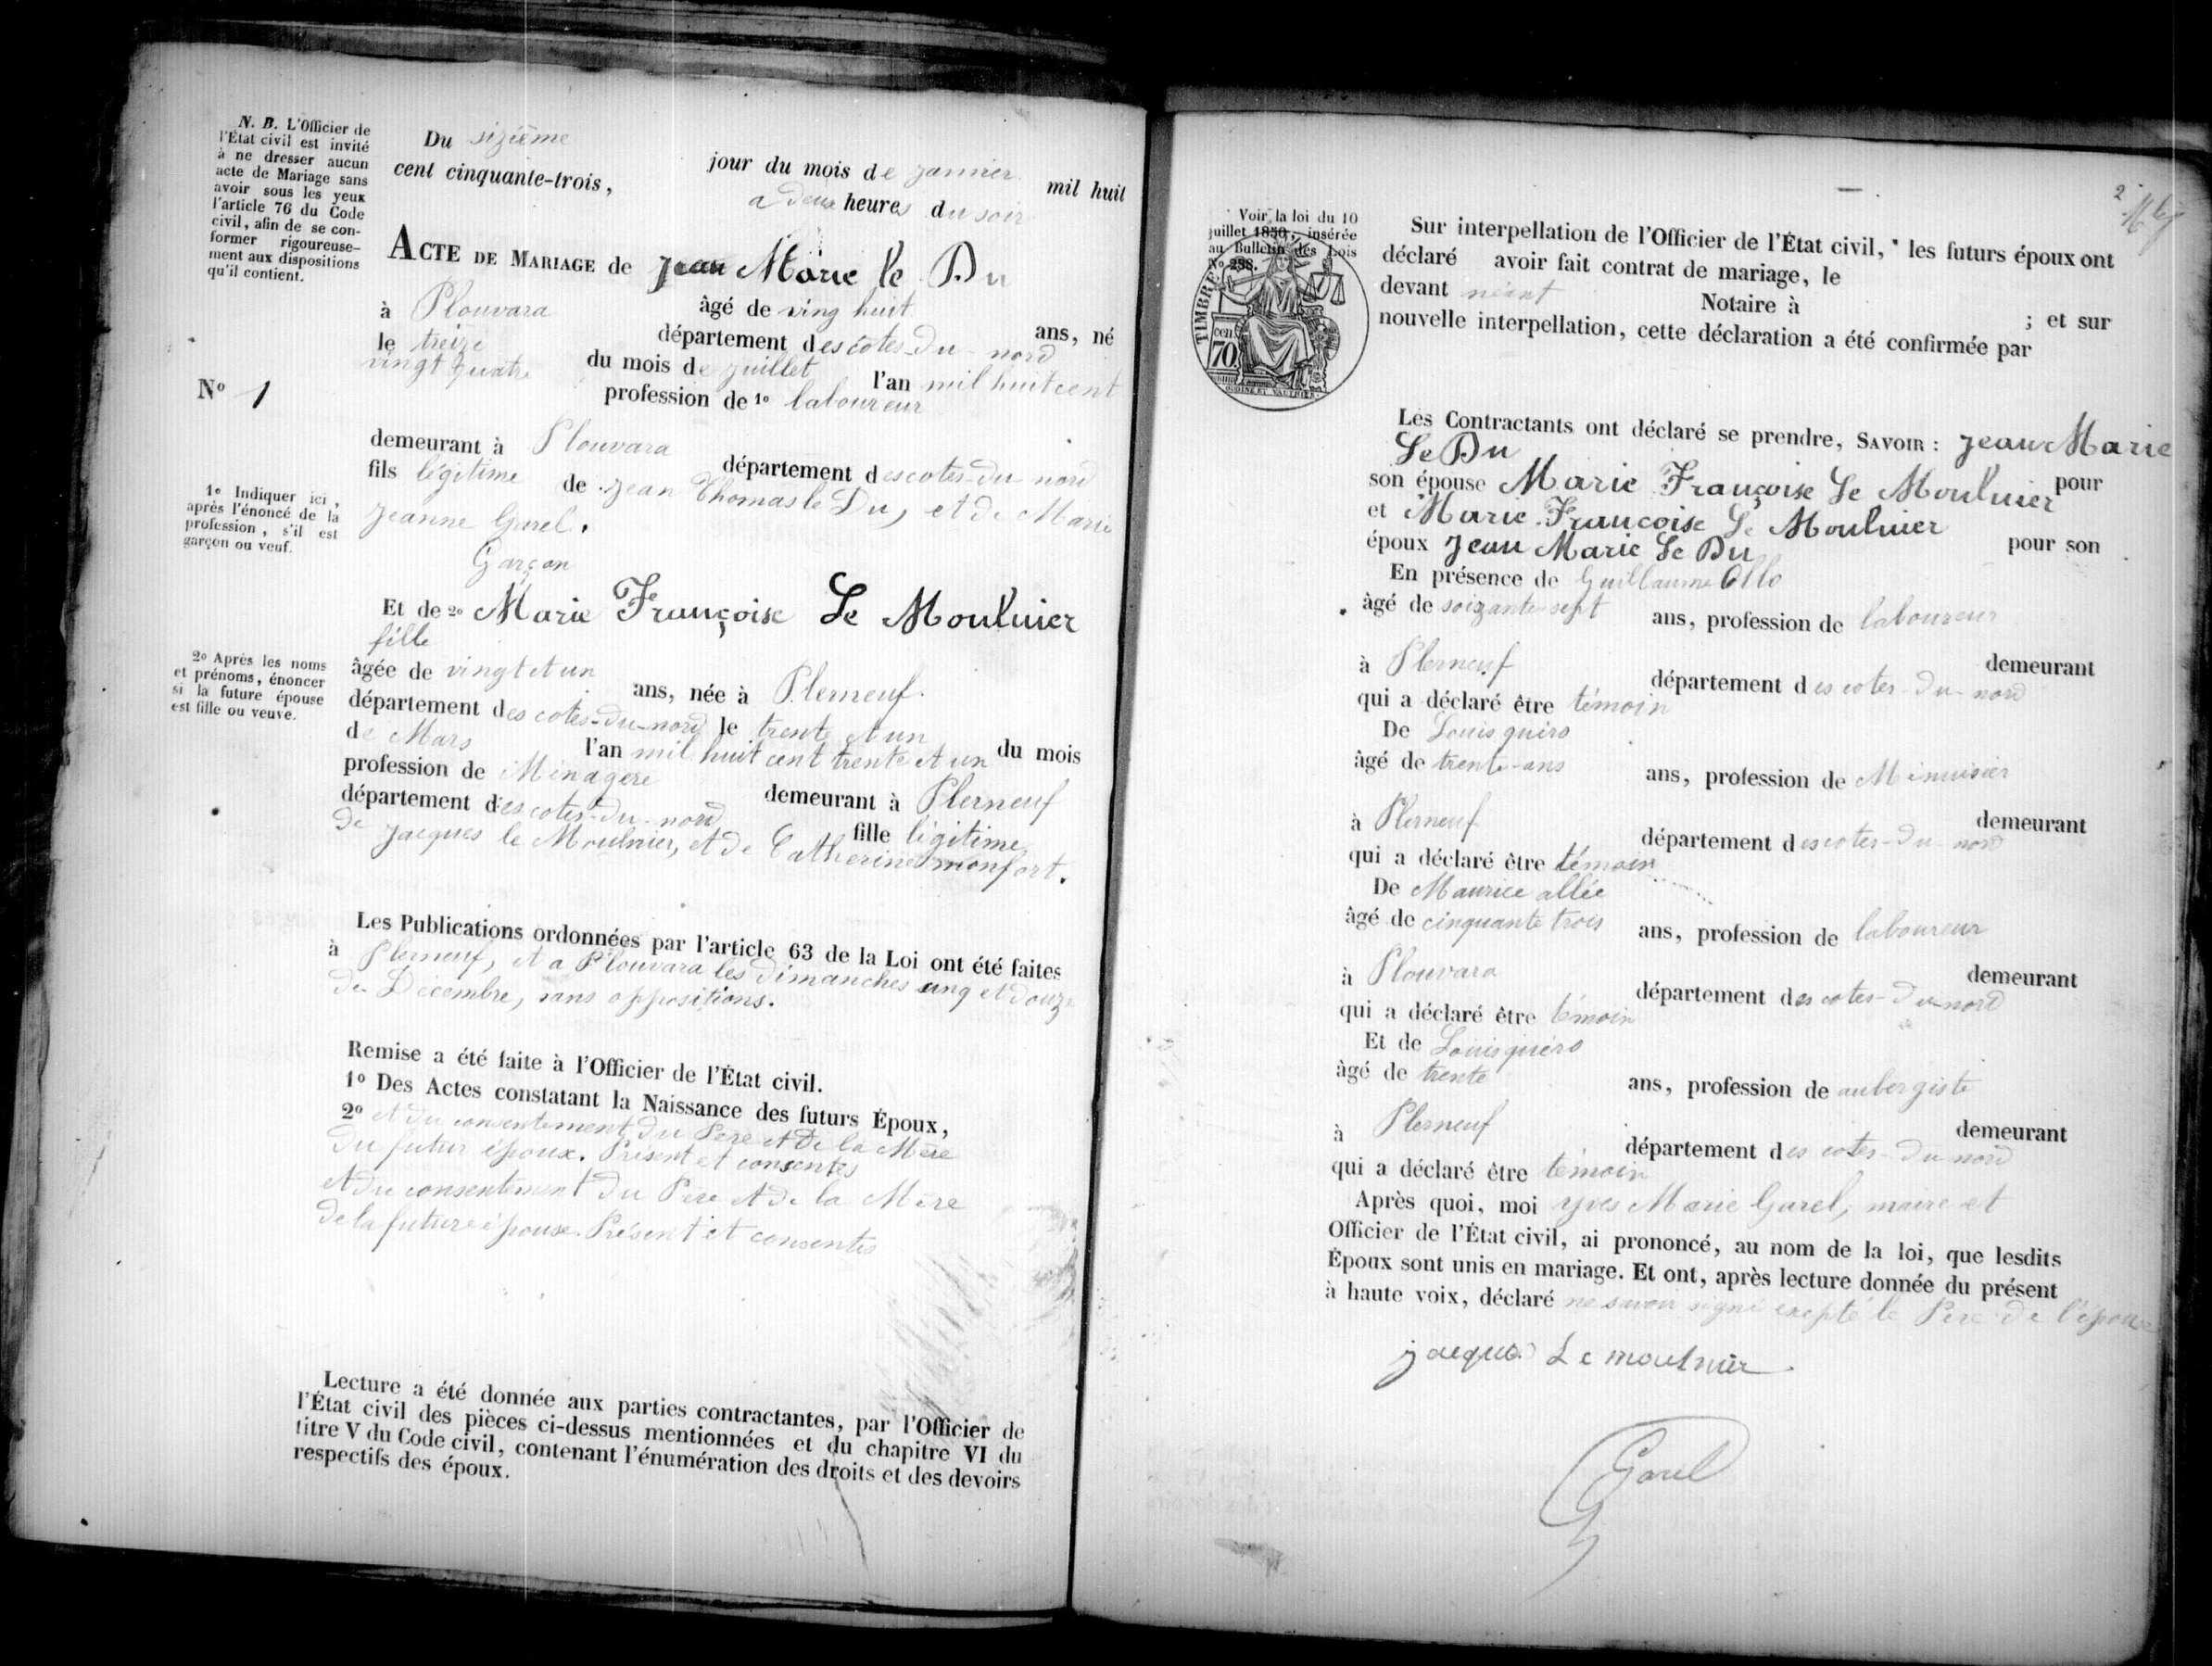 N. B. L'Officier de
l'État civil est invité
à ne dresser aucun
acte de Mariage sans
avoir sous les yeux
l'article 76 du Code
civil, afin de se con-
former rigoureuse-
ment aux dispositions
qu'il contient.
Du sizième jour du mois de janvier mil huit
cent cinquante-trois, a deux heures du soir
ACTE DE MARIAGE de jean Marie le Du
âgé de ving huit ans, né
à Plouvara département des cotes-du-nord
le treize du mois de juillet l'an mil huit cent
vingt quatre profession de 1º laboureur
Nº 1
demeurant à Plouvara département des cotes-du-nord
fils légitime de jean Thomas le Du, et de Marie
jeanne Garel.
Garçon
1º Indiquer ici,
après l'énoncé de la
profession, s'il est
garçon ou veuf.
Et de 2º Marie Françoise Le Moulnier
fille
âgée de vingt et un ans, née à Plerneuf.
département des cotes-du-nord le trente et un du mois
de Mars l'an mil huit cent trente et un
profession de Ménagere demeurant à Plerneuf
département des cotes-du-nord fille légitime
de jacques le Moulnier, et de Catherine monfort.
2º Après les noms
et prénoms, énoncer
si la future épouse
est fille ou veuve.
Les Publications ordonnées par l'article 63 de la Loi ont été faites
à Plerneuf, et a Plouvara les dimanches cinq et douze
de Décembre, sans oppositions.
Remise a été faite à l'Officier de l'État civil.
1º Des Actes constatant la Naissance des futurs Époux,
2º et du consentement du Père et de la Mère
du futur époux. Présent et consentes
et du consentement du Père et de la Mère
de la future épouse Présent et consentes
Lecture a été donnée aux parties contractantes, par l'Officier de
l'État civil des pièces ci-dessus mentionnées et du chapitre VI du
titre V du Code civil, contenant l'énumération des droits et des devoirs
respectifs des époux.
2
Voir la loi du 10
juillet 1850, insérée
au Bulletin des Lois
Nº 288.
TIMBRE
cen
70
Sur interpellation de l'Officier de l'État civil, les futurs époux ont
déclaré avoir fait contrat de mariage, le
devant néant Notaire à ; et sur
nouvelle interpellation, cette déclaration a été confirmée par
Les Contractants ont déclaré se prendre, SAVOIR : jean Marie
Le Du pour
son épouse Marie Françoise Le Moulnier
et Marie Françoise Le Moulnier pour son
époux jean Marie Le Du
En présence de Guillaume Ollo
âgé de soizante sept ans, profession de laboureur
demeurant
à Plerneuf département des cotes-du-nord
qui a déclaré être témoin
De Louis quiro
âgé de trente-ans ans, profession de Minuisier
demeurant
à Plerneuf département des cotes-du-nord
qui a déclaré être témoin
De Maurice allée
âgé de cinquante trois ans, profession de laboureur
demeurant
à Plouvara département des cotes-du-nord
qui a déclaré être témoin
Et de Louis quéro
âgé de trente ans, profession de aubergiste
demeurant
à Plerneuf département des cotes-du-nord
qui a déclaré être témoin
Après quoi, moi yves Marie Garel, maire et
Officier de l'État civil, ai prononcé, au nom de la loi, que lesdits
Époux sont unis en mariage. Et ont, après lecture donnée du présent
à haute voix, déclaré ne savoir signé excepté le Pere de l'épouse
jacques Le moulnier
Garel